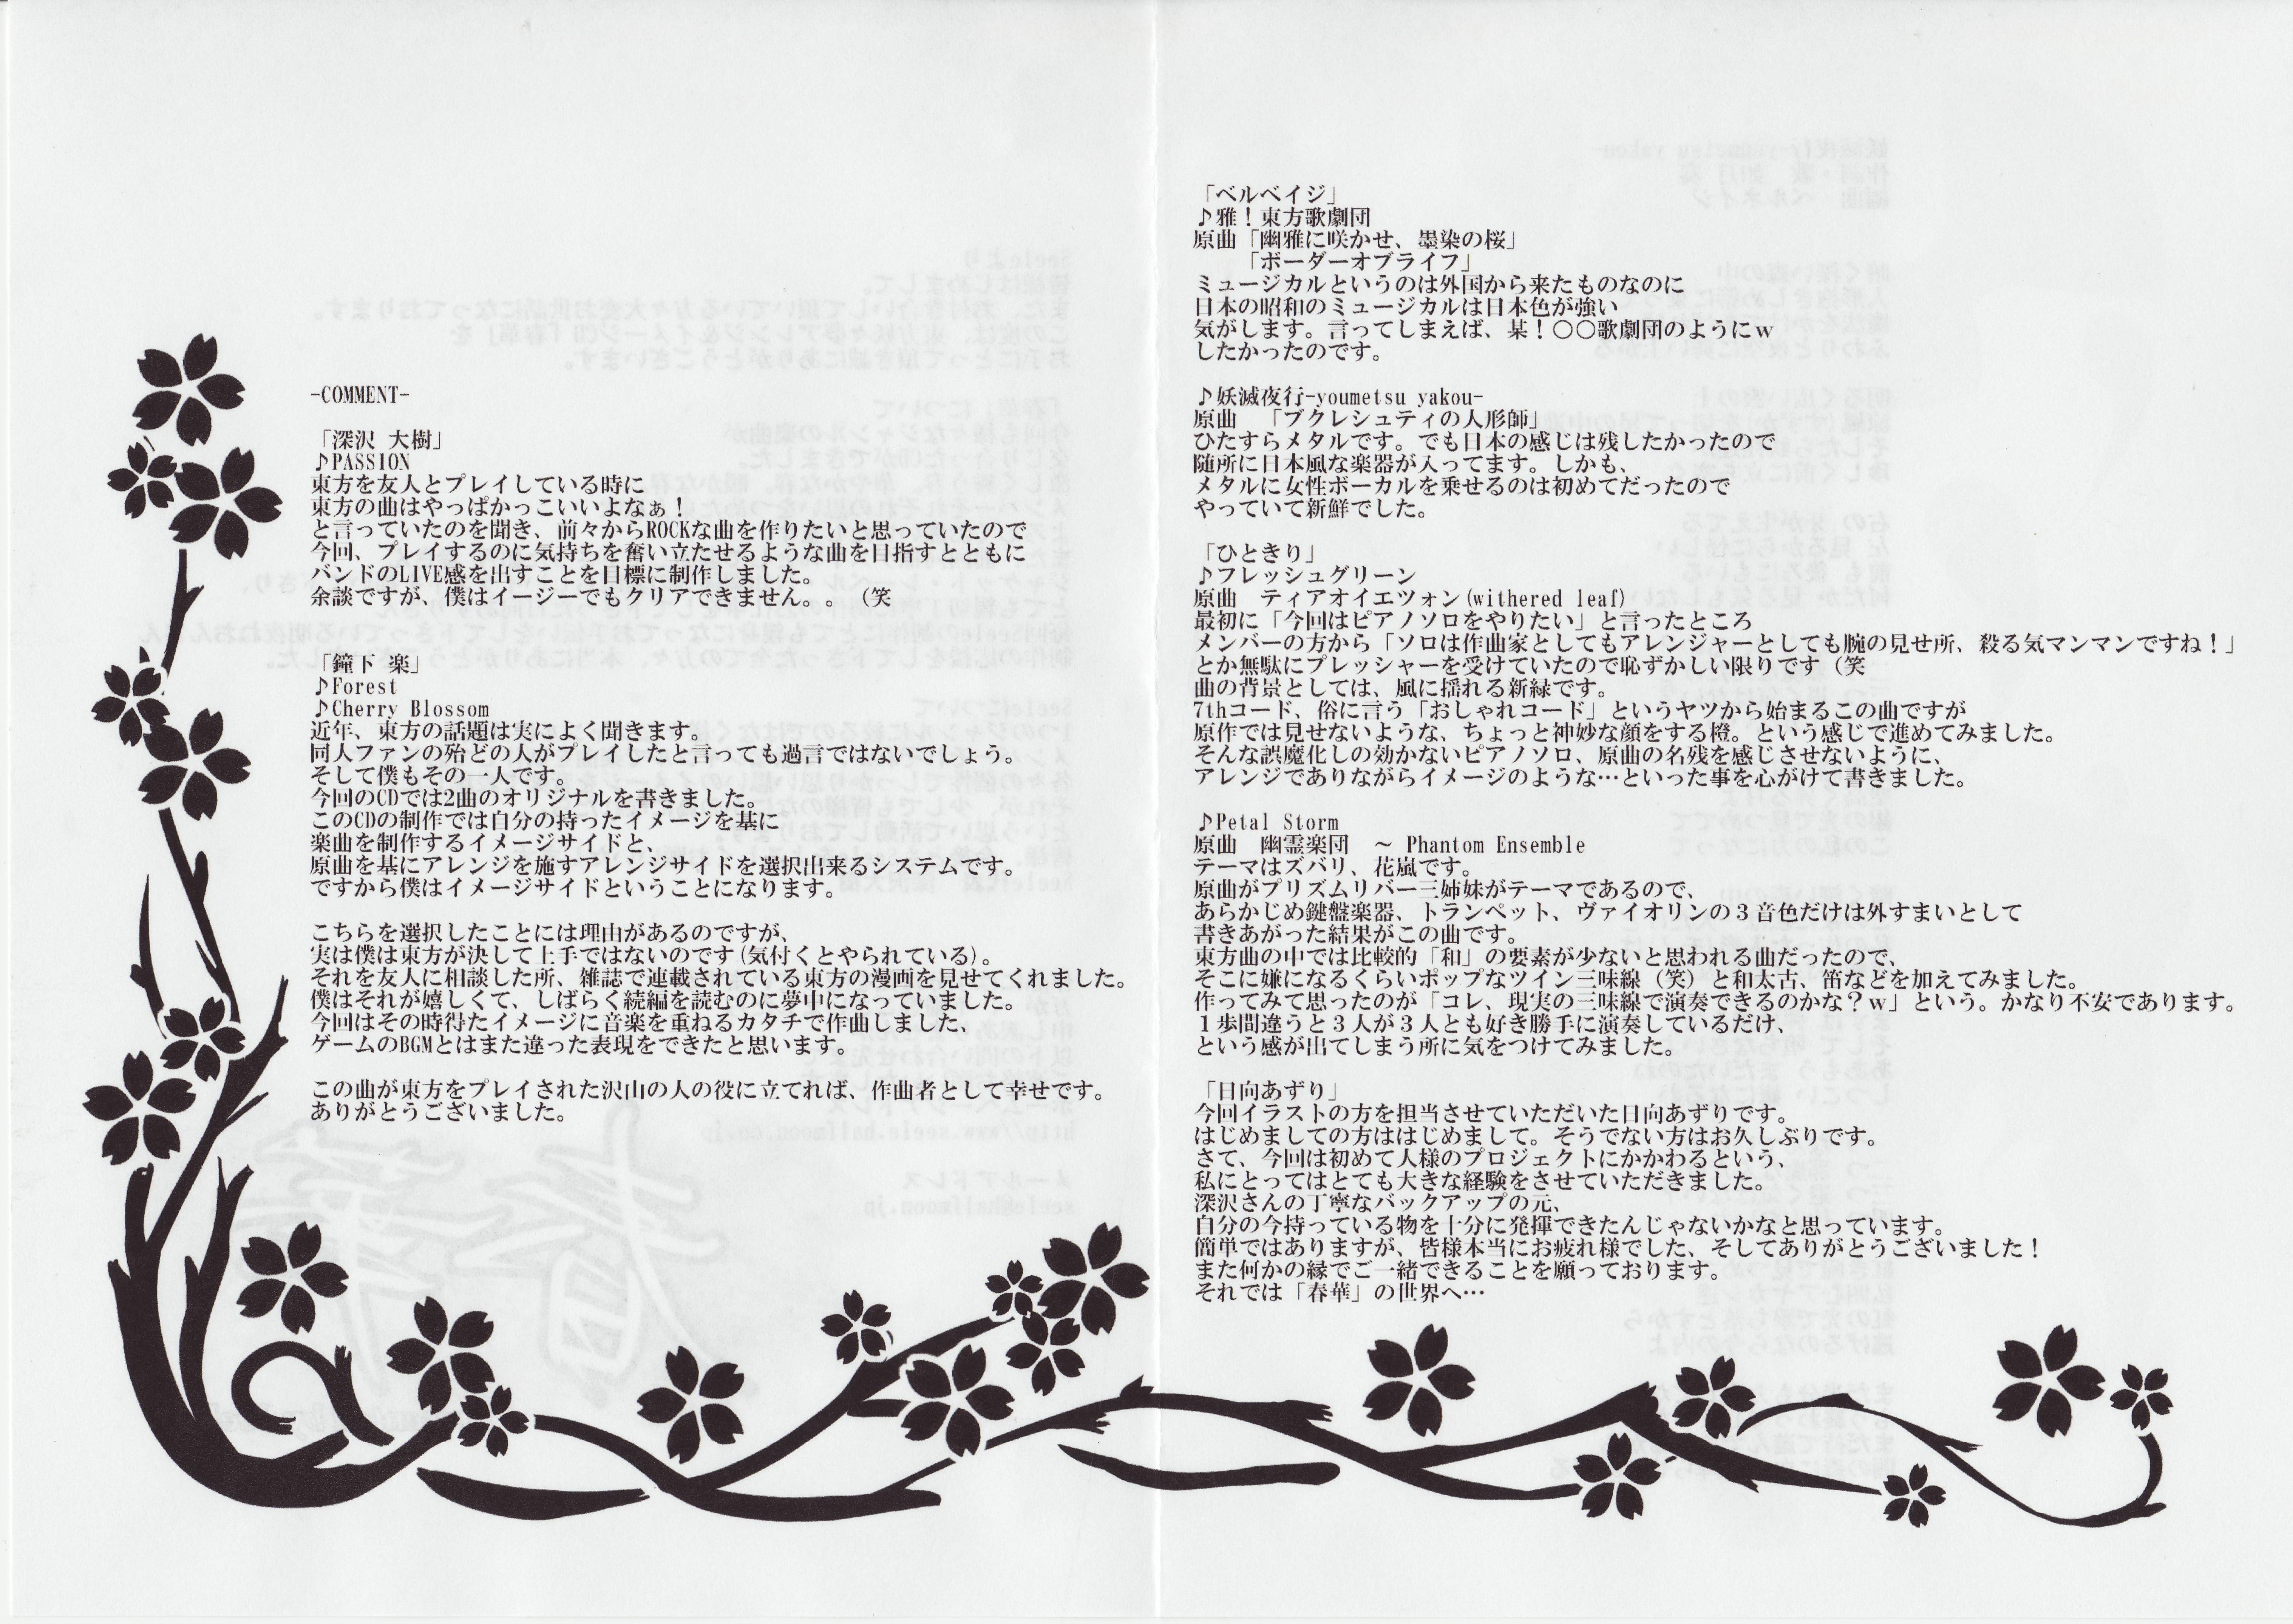 -COMMENT-
「深沢 大樹」
♪PASSION
東方を友人とプレイしている時に
東方の曲はやっぱかっこいいよなぁ！
と言っていたのを聞き、前々からROCKな曲を作りたいと思っていたので
今回、プレイするのに気持ちを奮い立たせるような曲を目指すとともに
バンドのLIVE感を出すことを目標に制作しました。
余談ですが、僕はイージーでもクリアできません。。（笑
「鐘下 楽」
♪Forest
♪Cherry Blossom
近年、東方の話題は実によく聞きます。
同人ファンの殆どの人がプレイしたと言っても過言ではないでしょう。
そして僕もその一人です。
今回のCDでは2曲のオリジナルを書きました。
このCDの制作では自分の持ったイメージを基に
楽曲を制作するイメージサイドと、
原曲を基にアレンジを施すアレンジサイドを選択出来るシステムです。
ですから僕はイメージサイドということになります。
こちらを選択したことには理由があるのですが、
実は僕は東方が決して上手ではないのです(気付くとやられている)。
それを友人に相談した所、雑誌で連載されている東方の漫画を見せてくれました。
僕はそれが嬉しくて、しばらく続編を読むのに夢中になっていました。
今回はその時得たイメージに音楽を重ねるカタチで作曲しました、
ゲームのBGMとはまた違った表現をできたと思います。
この曲が東方をプレイされた沢山の人の役に立てれば、作曲者として幸せです。
ありがとうございました。
「ベルベイジ」
♪雅！東方歌劇団
原曲「幽雅に咲かせ、墨染の桜」
「ボーダーオブライフ」
ミュージカルというのは外国から来たものなのに
日本の昭和のミュージカルは日本色が強い
気がします。言ってしまえば、某！○○歌劇団のようにｗ
したかったのです。
♪妖滅夜行-youmetsu yakou-
原曲　「ブクレシュティの人形師」
ひたすらメタルです。でも日本の感じは残したかったので
随所に日本風な楽器が入ってます。しかも、
メタルに女性ボーカルを乗せるのは初めてだったので
やっていて新鮮でした。
「ひときり」
♪フレッシュグリーン
原曲　ティアオイエツォン(withered leaf)
最初に「今回はピアノソロをやりたい」と言ったところ
メンバーの方から「ソロは作曲家としてもアレンジャーとしても腕の見せ所、殺る気マンマンですね！」
とか無駄にプレッシャーを受けていたので恥ずかしい限りです（笑
曲の背景としては、風に揺れる新緑です。
7thコード、俗に言う「おしゃれコード」というヤツから始まるこの曲ですが
原作では見せないような、ちょっと神妙な顔をする橙。という感じで進めてみました。
そんな誤魔化しの効かないピアノソロ、原曲の名残を感じさせないように、
アレンジでありながらイメージのような…といった事を心がけて書きました。
♪Petal Storm
原曲　幽霊楽団　～ Phantom Ensemble
テーマはズバリ、花嵐です。
原曲がプリズムリバー三姉妹がテーマであるので、
あらかじめ鍵盤楽器、トランペット、ヴァイオリンの３音色だけは外すまいとして
書きあがった結果がこの曲です。
東方曲の中では比較的「和」の要素が少ないと思われる曲だったので、
そこに嫌になるくらいポップなツイン三味線（笑）と和太古、笛などを加えてみました。
作ってみて思ったのが「コレ、現実の三味線で演奏できるのかな？ｗ」という。かなり不安であります。
１歩間違うと３人が３人とも好き勝手に演奏しているだけ、
という感が出てしまう所に気をつけてみました。
「日向あずり」
今回イラストの方を担当させていただいた日向あずりです。
はじめましての方ははじめまして。そうでない方はお久しぶりです。
さて、今回は初めて人様のプロジェクトにかかわるという、
私にとってはとても大きな経験をさせていただきました。
深沢さんの丁寧なバックアップの元、
自分の今持っている物を十分に発揮できたんじゃないかなと思っています。
簡単ではありますが、皆様本当にお疲れ様でした、そしてありがとうございました！
また何かの縁でご一緒できることを願っております。
それでは「春華」の世界へ…